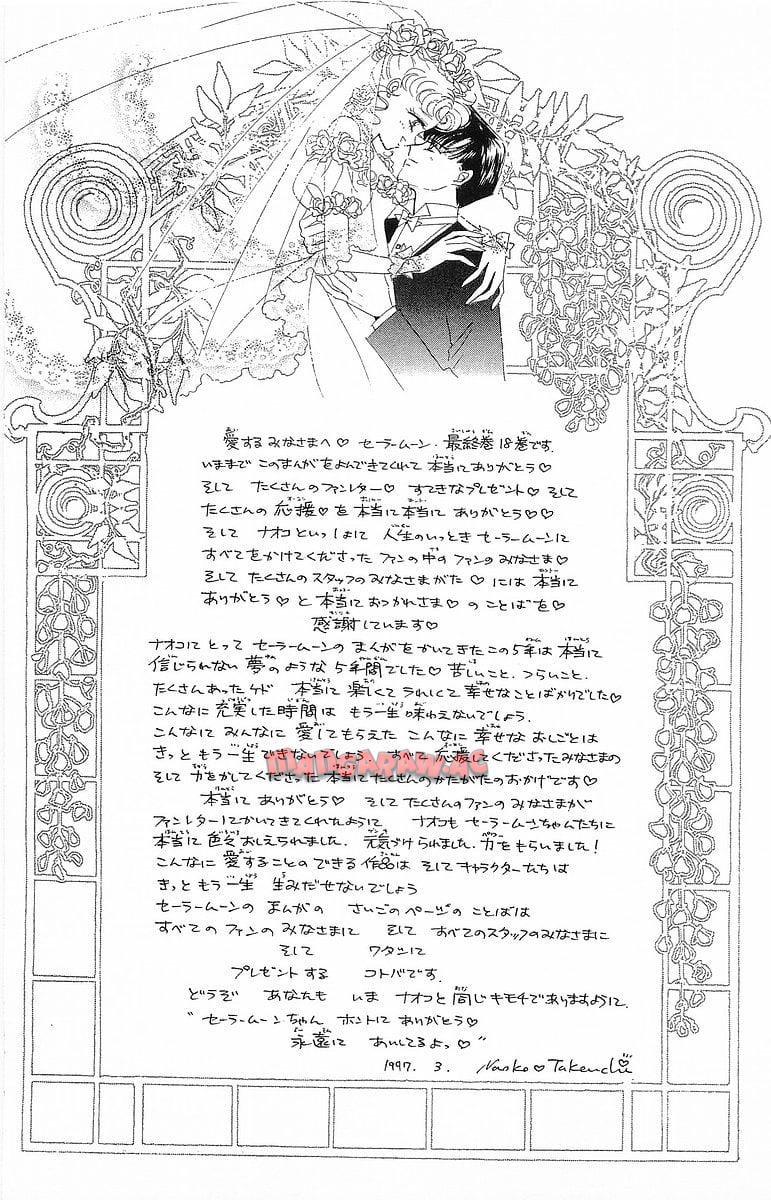 愛するみなさまへ♡ セーラームーン・最終巻18巻です.
いままで このまんがをよんできてくれて 本当にありがとう♡
そして たくさんのファンレター♡ すてきなプレゼント♡ そして
たくさんの 応援♡を 本当に本当に ありがとう♡♡
そして ナオコといっしょに 人生のいっとき セーラームーンに
すべてをかけてくださった ファンの中の ファンの みなさま♡
そして たくさんの スタッフの みなさまがた♡には 本当に
ありがとう♡ と 本当に おつかれさま♡ の ことばを♡
感謝しています♡
ナオコにとって セーラームーンの まんがをかいてきた この5年は 本当に
信じられない 夢のような 5年間でした♡ 苦しいこと. つらいこと.
たくさんあったケド 本当に 楽しくて うれしくて 幸せなことばかりでした♡
こんなに 充実した時間は もう一生 味わえないでしょう.
こんなに みんなに 愛してもらえた こんなに 幸せな おしごとは
きっと もう一生 できないでしょう すべて 応援してくださったみなさまの
そして 力をかしてくださった 本当にたくさんのかたがたのおかげです♡
本当に ありがとう♡ そして たくさんのファンの みなさまが
ファンレターにかいてきてくれたように ナオコも セーラームーンちゃんたちに
本当に 色々 おしえられました. 元気づけられました. 力をもらいました!
こんなに 愛することの できる 作品は そして キャラクターたちは
きっと もう一生 生みだせないでしょう
セーラームーンの まんがの さいごの ページの ことばは
すべての ファンの みなさまに そして すべてのスタッフのみなさまに
そして ワタシに
プレゼントする コトバです.
どうぞ あなたも いま ナオコと 同じ キモチで ありますように.
"セーラームーンちゃん ホントに ありがとう♡
永遠に あいしてるよっ♡"
1997. 3. Naoko♡Takeuchi
MANGARAW.AC